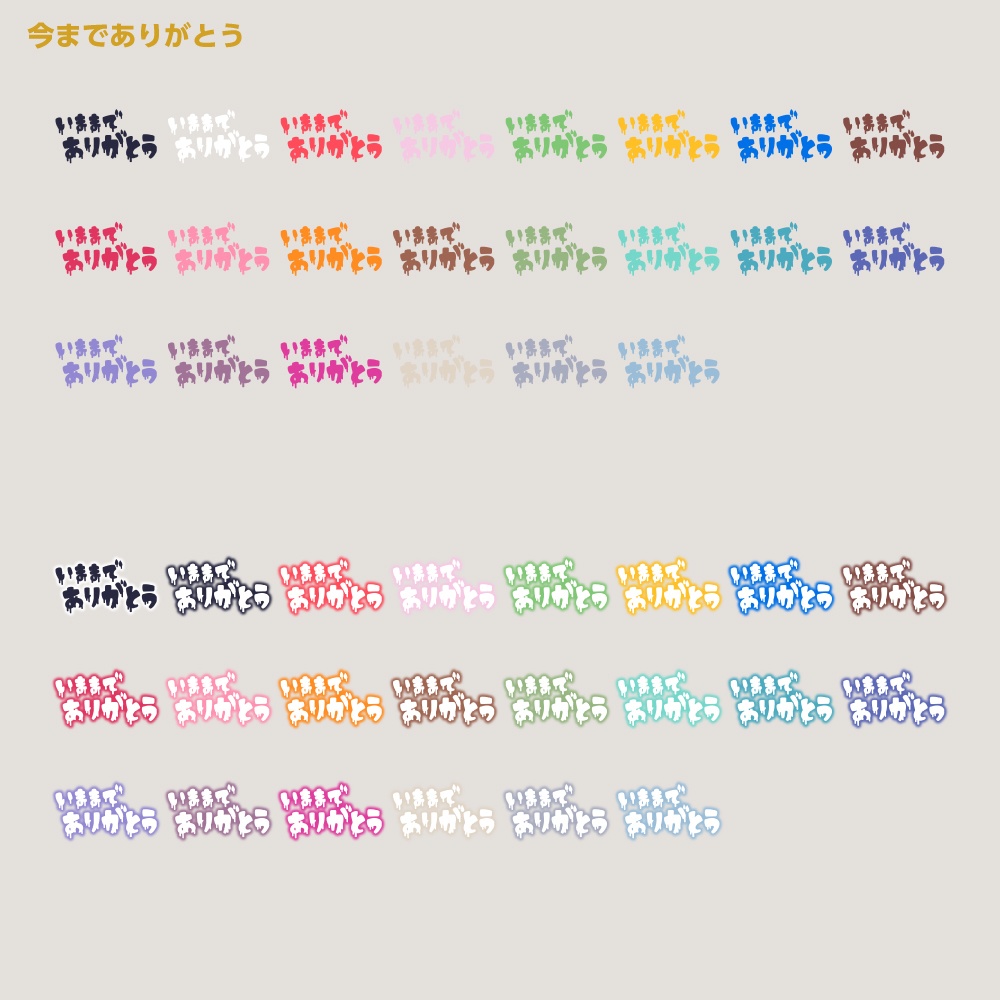 今までありがとう
いままで いままで いままで いままで いままで いままで いままで いままで
ありがとう ありがとう ありがとう ありがとう ありがとう ありがとう ありがとう ありがとう
いままで いままで いままで いままで いままで いままで いままで いままで
ありがとう ありがとう ありがとう ありがとう ありがとう ありがとう ありがとう ありがとう
いままで いままで いままで いままで いままで いままで
ありがとう ありがとう ありがとう ありがとう ありがとう ありがとう
いままで いままで いままで いままで いままで いままで いままで いままで
ありがとう ありがとう ありがとう ありがとう ありがとう ありがとう ありがとう ありがとう
いままで いままで いままで いままで いままで いままで いままで いままで
ありがとう ありがとう ありがとう ありがとう ありがとう ありがとう ありがとう ありがとう
いままで いままで いままで いままで いままで いままで
ありがとう ありがとう ありがとう ありがとう ありがとう ありがとう